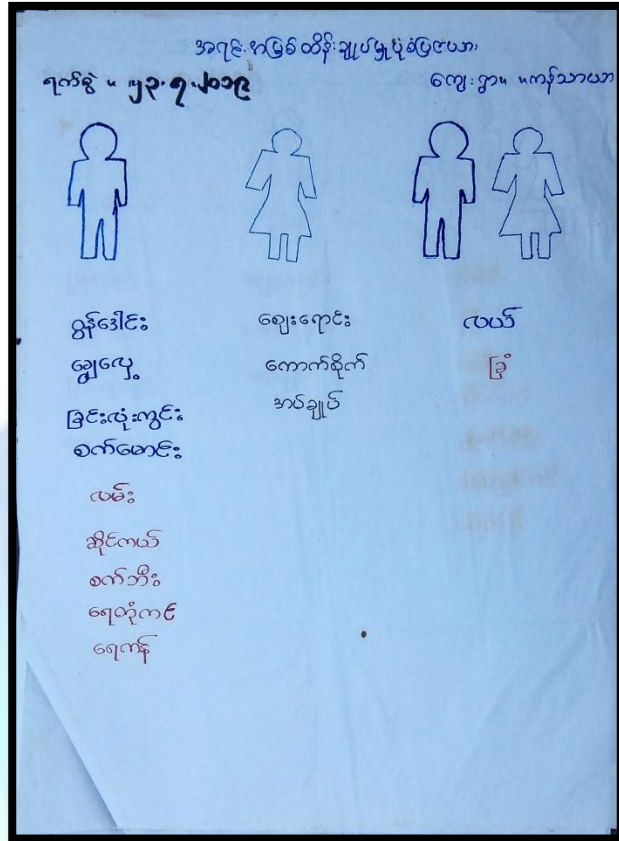 အရင်းအမြစ်ထိန်းချုပ်မှုပုံစံပြဇယား
ရက်စွဲ ။ ။၂၃.၇.၂၀၁၉ ကျေးရွာ။ ။ကန်သာယာ
ထွန်ဒေါင်း
ချွေလှေ့
ခြင်းလုံးကွင်း
စက်မောင်း
လမ်း
ဆိုင်ကယ်
စက်ဘီး
ရေတုံကင်
ရေကန်
ဈေးရောင်း
ကောက်စိုက်
အပ်ချုပ်
လယ်
ခြံ